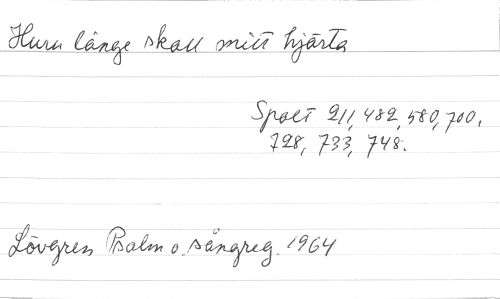 Huru länge skall mitt hjärta
Spalt 211, 482, 580, 700,
728, 733, 748.
Lövgren Psalm o. sångreg. 1964